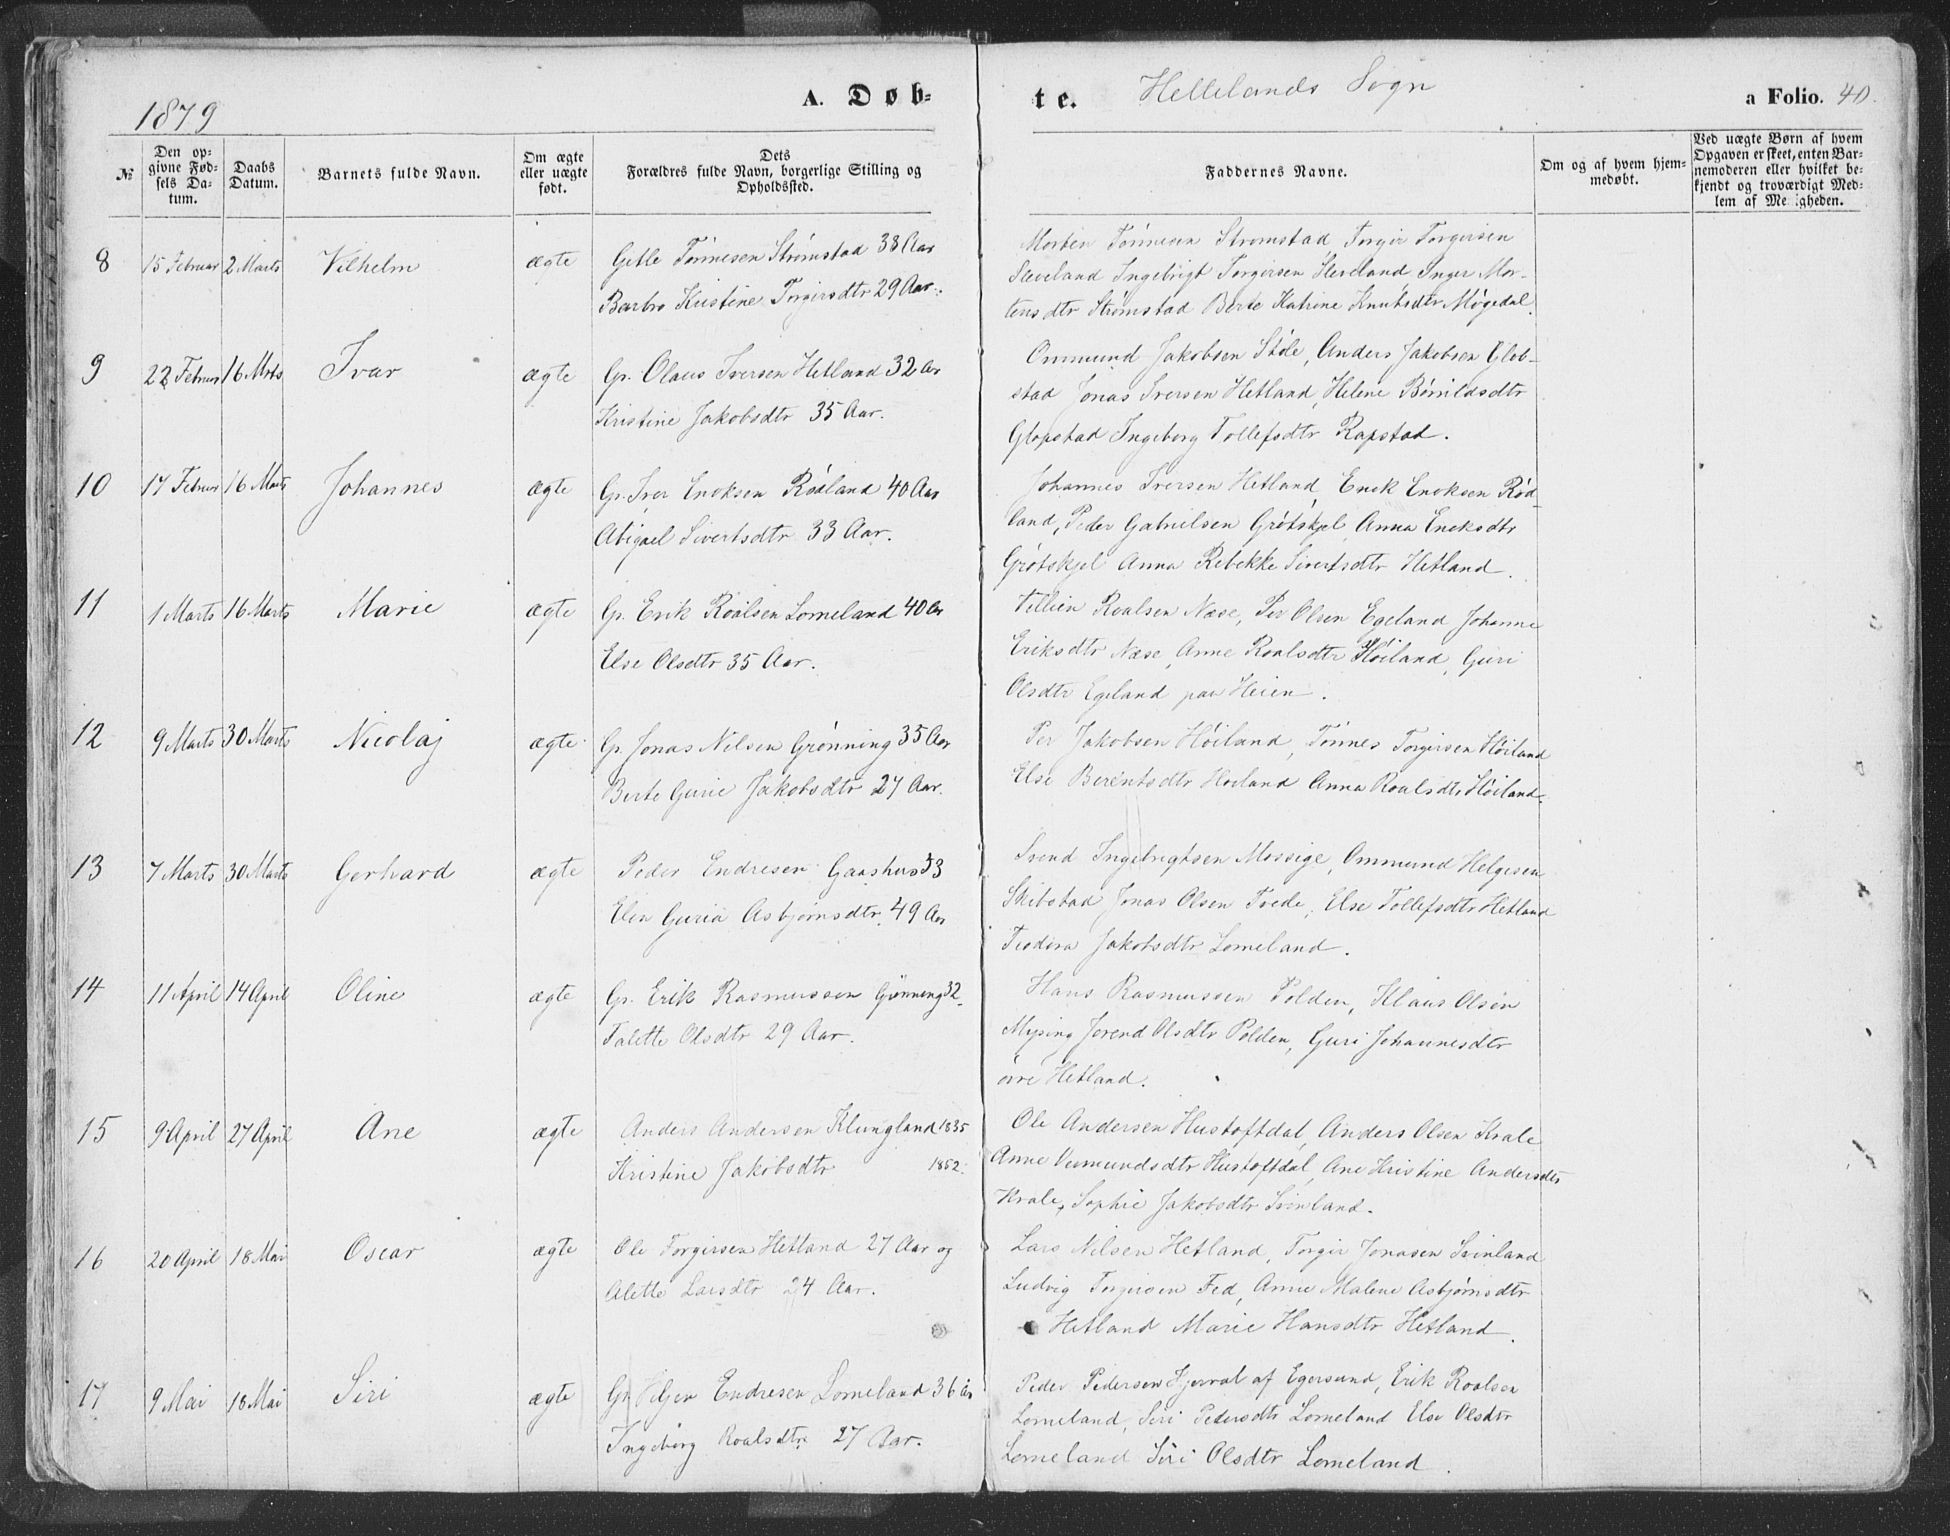 1879
A. Døb-
te.
Hellelands Sogn
a Folio. 40.
№
Den op-
givne Fød-
sels Da-
tum.
Daabs
Datum.
Barnets fulde Navn.
Om ægte
eller uægte
født.
Dets
Forældres fulde Navn, borgerlige Stilling og
Opholdssted.
Faddernes Navne.
Om og af hvem hjem-
medøbt.
Ved uægte Børn af hvem
Opgaven er skeet, enten Bar-
nemoderen eller hvilket be-
kjendt og troværdigt Med-
lem af Menigheden.
8 15 Februar 2 Marts Vilhelm ægte Getle Tönnesen Strømstad 38 Aar
Barbro Kristine Torgersdtr 29 Aar.
Morten Tönnesen Strømstad, Torgir Torgersen
Sleveland Ingebrigt Torgersen Sleveland Inger Mor-
tensdtr Strømstad Berte Katrine Knutsdtr Møgedal.
9 22 Februar 16 Mrts Ivar ægte Gr. Olaus Iversen Hetland 32 Ar
Kristine Jakobsdtr 35 Aar.
Ommund Jakobsen Støle, Anders Jakobsen Glob-
stad Jonas Iversen Hetland, Helene Børildsdtr
Glopstad Ingeborg Tollefsdtr Rapstad.
10 17 Februar 16 Marts Johannes ægte Gr. Iver Enoksen Rødland 40 Aar
Abigael Sivertsdtr 33 Aar.
Johannes Iversen Hetland, Enok Enoksen Rød-
land, Peder Gabrielsen Grøtskjel Anna Eneksdtr
Grøtskjel Anna Rebekke Sivertsdtr Hetland.
11 1 Marts 16 Marts Marie ægte Gr. Erik Roalsen Lomeland 40 Ar
Else Olsdtr 35 Aar.
Roalsen Næse, Per Olsen Egeland Johanne
Eriksdtr Næse, Anne Roalsdtr Høiland, Guri
Olsdtr Egeland paa Heien.
12 9 Marts 30 Marts Nicolaj ægte Gr. Jonas Nilsen Grønning 35 Aar
Berte Gurie Jakobsdtr 27 Aar.
Per Jakobsen Høiland, Tönnes Torgersen Høiland
Else Berentsdtr Høiland Anna Roalsdtr Høiland.
13 7 Marts 30 Marts Gerhard ægte Peder Endresen Gaashus 53
Elen Guria Asbjørnsdtr. 49 Ar
Svend Ingebrigtsen Mossige, Ommund Helgesen
Skibstad Jonas Olsen Tvede, Else Tollefsdtr Hetland
Teodora Jakobsdtr Lomeland.
14 11 April 14 April Oline ægte Gr. Erik Rasmussen Grønning 32
Talette Olsdtr 29 Aar.
Hans Rasmussen Polden, Klaus Olsen
Mysing Jorend Olsdtr Polden, Guri Johannesdtr
øvre Hetland.
15 9 April 27 April Ane ægte Anders Andersen Klungland 1835
Kristine Jakobsdtr 1852.
Ole Andersen Hustoftdal, Anders Olsen Krale
Anne Vemundsdtr Hustoftdal, Ane Kristine Andersdtr
Krale, Sophie Jakobsdtr Svinland.
16 20 April 18 Mai Oscar ægte Ole Torgersen Hetland 27 Aar og
Alette Larsdtr 24 Aar.
Lars Nilsen Hetland, Torgir Jonasen Svinland
Ludvig Torgersen Fed, Anne Malene Asbjørnsdtr
Hetland Marie Hansdtr Hetland.
17 9 Mai 18 Mai Siri ægte Gr. Endresen Lomeland 36 år
Ingeborg Roalsdtr 27 Aar.
Peder Pedersen af Egersund, Erik Roalsen
Lomeland, Siri Pedersdtr Lomeland Else Olsdtr
Lomeland Siri Olsdtr Lomeland.